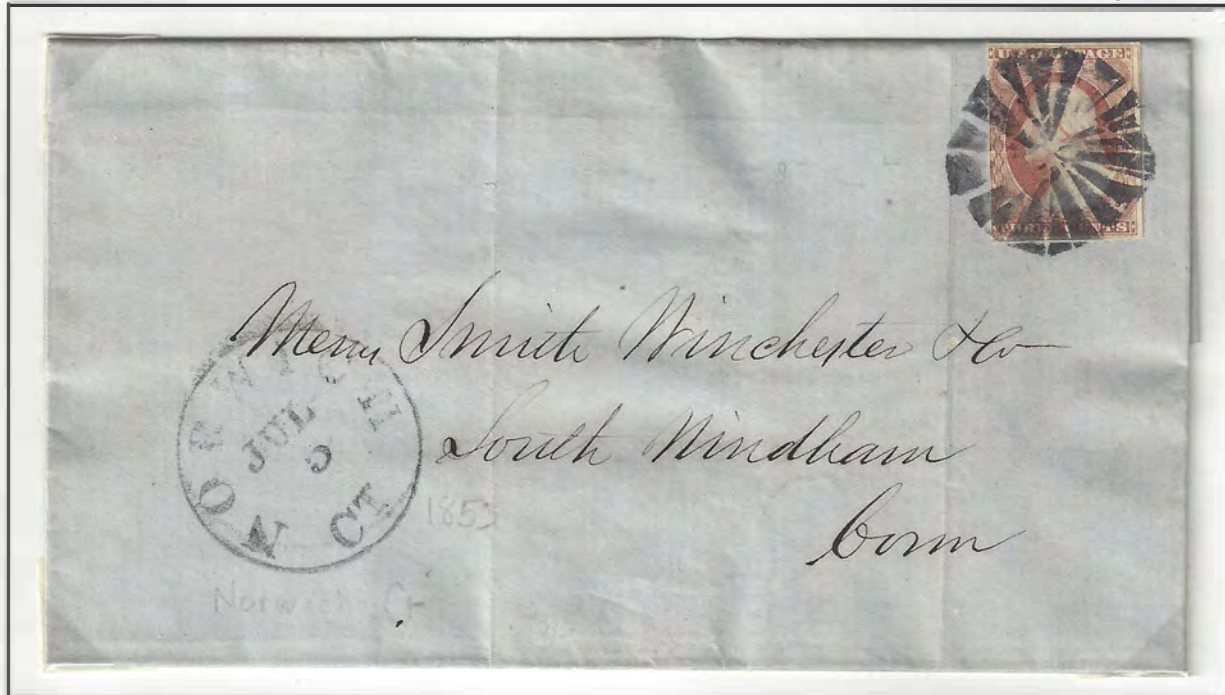 U.S. POSTAGE
THREE CENTS
Messrs Smith Winchester & Co
South Windham
Conn
NORWICH CT
JUL
5
1853
Norwich Ct